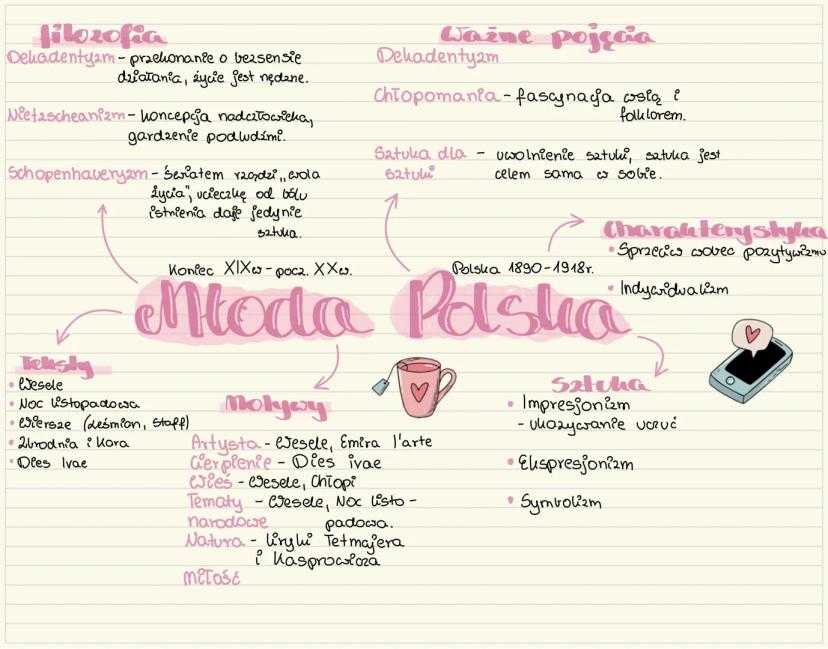 filozofia
Dekadentyzm - przekonanie o bezsensie
działania, życie jest nędzne.
Nietzscheanizm - koncepcja nadczłowieka,
gardzenie podludźmi.
Schopenhaueryzm - światem rządzi „wola
życia”, ucieczkę od bólu
istnienia daje jedynie
sztuka.
Ważne pojęcia
Dekadentyzm
Chłopomania - fascynacja wsią i
folklorem.
Sztuka dla - uwolnienie sztuki, sztuka jest
sztuki celem sama w sobie.
Charakterystyka
• Sprzeciw wobec pozytywizmu
• Indywidualizm
Koniec XIXw - pocz. XXw.
Polska 1890-1918r.
Młoda Polska
Teksty
• Wesele
• Noc listopadowa
• Wiersze (Leśmian, Staff)
• Zbrodnia i kara
• Dies Irae
Motywy
Artysta - Wesele, Emira l'arte
Cierpienie - Dies irae
Wieś - Wesele, Chłopi
Tematy - Wesele, Noc listo -
narodowe padowa.
Natura - liryki Tetmajera
i Kasprowicza
Miłość
Sztuka
• Impresjonizm
- ukazywanie uczuć
• Ekspresjonizm
• Symbolizm